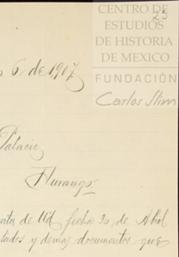 CENTRO DE
ESTUDIOS
DE HISTORIA
DE MEXICO
FUNDACIÓN
Carlos Slim
25
6 de 1907
Palacio
Durango
de Ud. fecha 30 de Abril
y demas documentos que